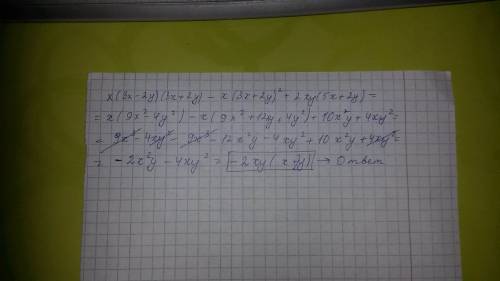 x(3x-2y)(3x+2y) - x(3x+2y)² + 2xy(5x+2y) =
= x(9x²-4y²) - x(9x²+12xy+4y²) + 10x²y + 4xy² =
= 9x³ - 4xy² - 9x³ - 12x²y - 4xy² + 10x²y + 4xy² =
= -2x²y - 4xy² = -2xy(x+2y) → Ответ